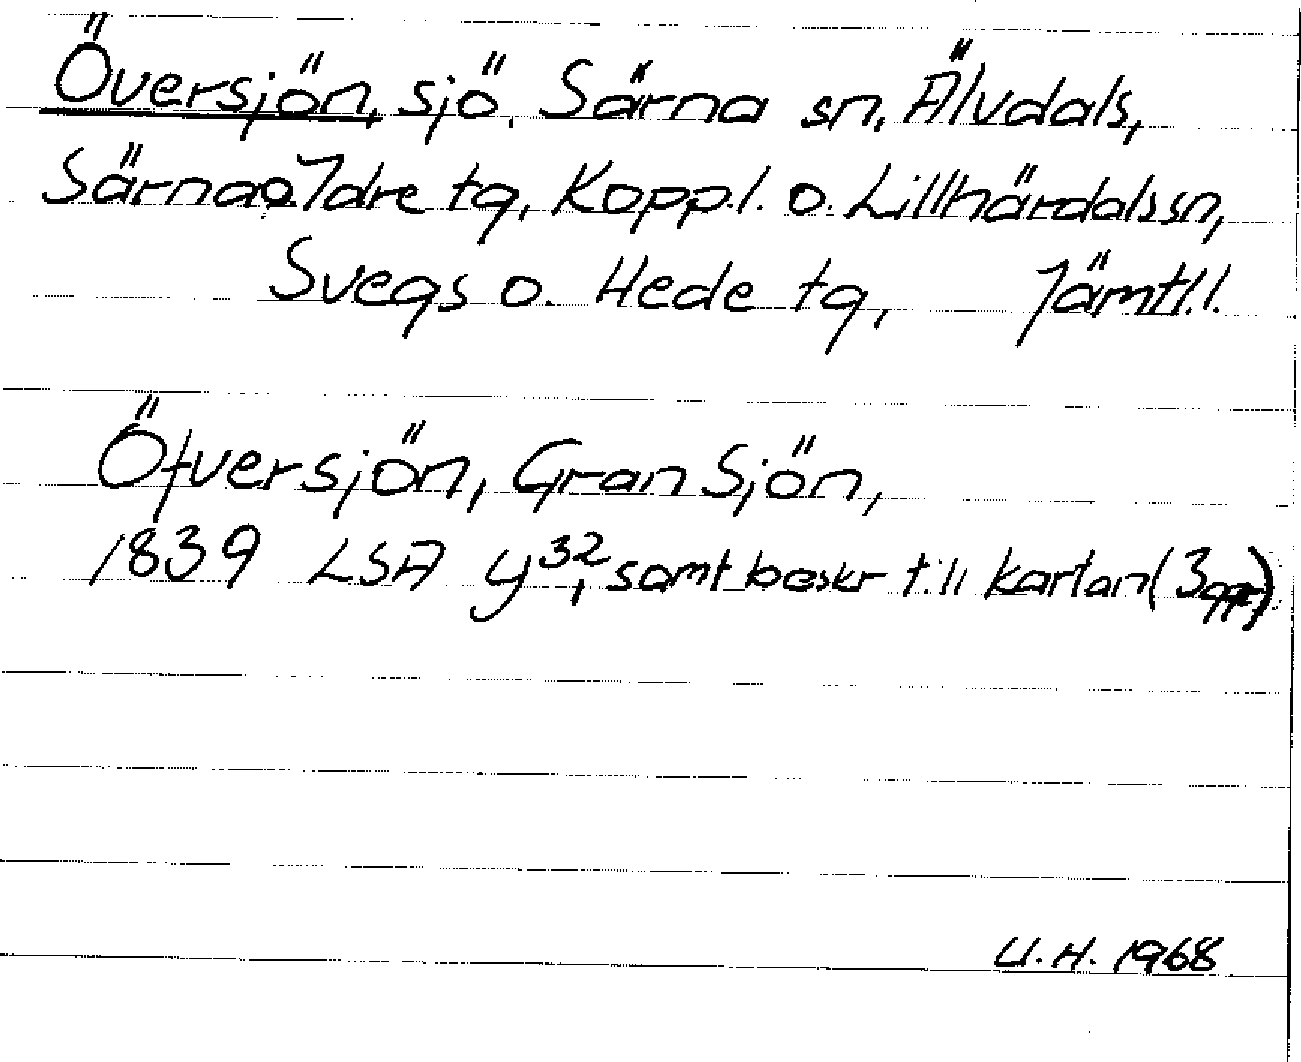 Översjön, sjö, Särna sn, Älvdals,
Särna o. Idre tg, Koppl. o. Lillhärdals sn,
Svegs o. Hede tg, Jämtl.l.
Öfversjön, Gran Sjön,
1839 LSA y32, samt beskr till kartan (3 ggr)
U.H. 1968